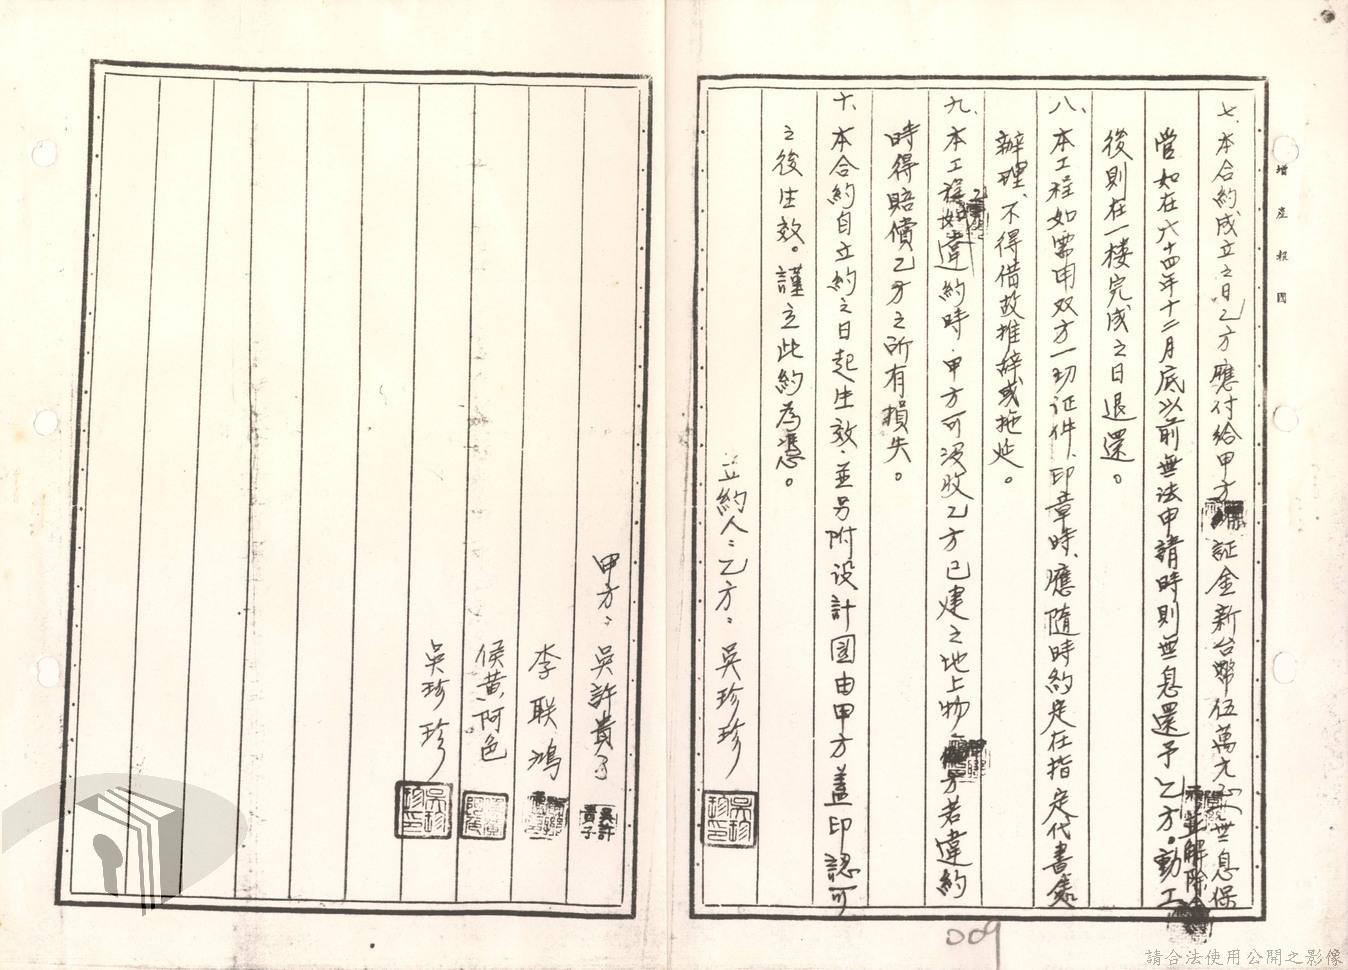 增產報國
七、本合約成立之日乙方應付給甲方證金新台幣伍萬元正無息保
管如在六十四年十二月底以前無法申請時則無息還予乙方。動工
並解除
後則在一楼完成之日退還。
八、本工程如需用双方一切证件、印章時、應隨時約定在指定代書處
辦理、不得借故推辞或拖延。
九、本工程如違約時、甲方可沒收乙方已建之地上物、方若違約
乙
時得賠償乙方之所有損失。
十、本合約自立約之日起生效、並另附設計圖由甲方蓋印認可
之後生效。謹立此約為憑。
立約人：乙方：吳珍珍
吳珍珍印
甲方：吳許貴子
吳許貴子
李联鴻
侯黄阿色
吳珍珍
吳珍珍印
009
請合法使用公開之影像